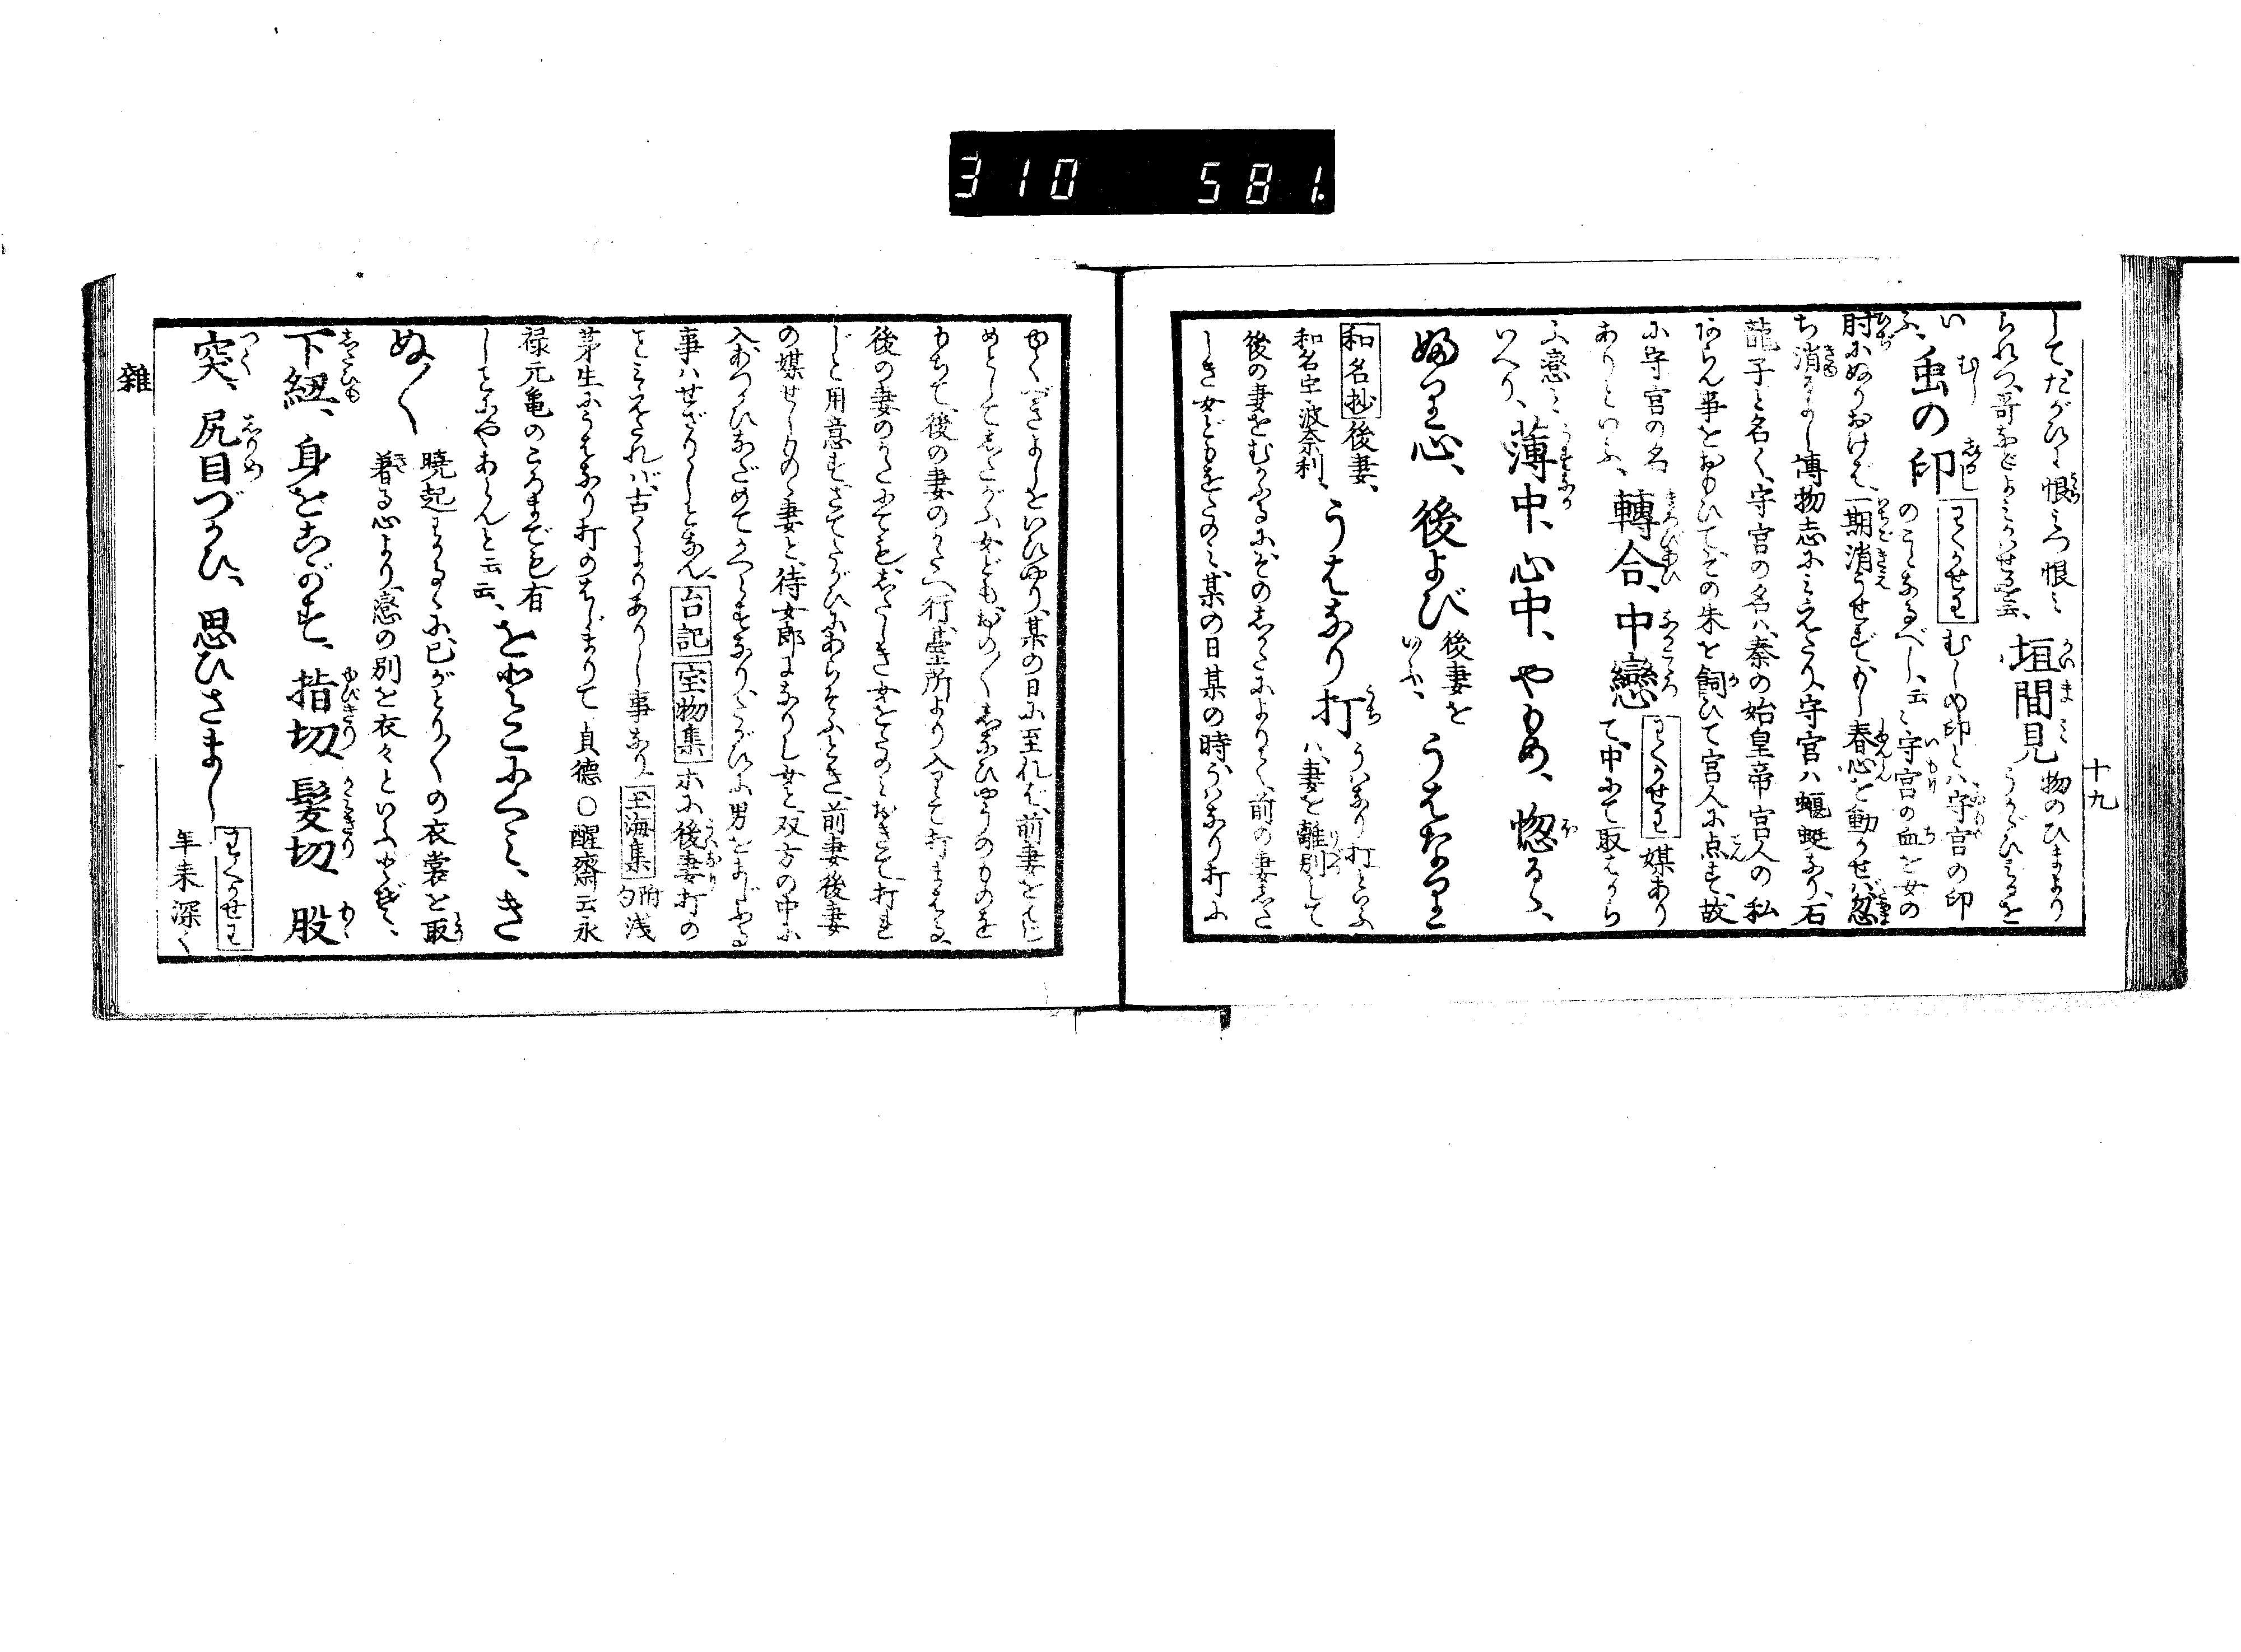 310 581.
十九
して、たがひに恨みつ恨み
られつ、哥などよみかはせる云云、垣間見 物のひまより
うかゞひみるを
い
ふ、虫の印 わくかせわ むしの印とハ守宮の印
のことなるべし、云云守宮の血を女の
肘にぬりおけば、一期消うせず、もし春心を動かせバ忽
ち消るよし博物志にみえたり、守宮ハ蝘蜓なり、石
龍子と名く、守宮の名ハ、秦の始皇帝宮人の私
あらん事をおもひて、その朱を飼ひて宮人に点ず、故
に守宮の名
ありといふ、轉合、中戀 わくかせわ 媒あり
て、中にて取はから
ふ戀と
いへり、薄中、心中、やもめ、惚るゝ、
婦り心、後よび 後妻を
いふ、うはなり
和名抄 後妻、
和名宇波奈利、うはなり打 うはなり打といふ
ハ、妻を離別して
後の妻をむかふるに、そのしたによりて、前の妻した
しき女どもをたのみ、某の日某の時、うはなり打に
ゆくべきよしをいひやり、某の日に至れば、前妻をはじ
めとしてしたがふ女どもおの〳〵しなひやうのものを
もちて、後の妻のかたへ行、臺所より入りて打まはる、
後の妻のかたにても、したしき女をたのみおきて、打れ
じと用意す、さてたがひにあらそふとき、前妻後妻
の媒せしものゝ妻と、待女郎になりし女と、双方の中に
入、あつかひなだめてかへらすなり、たがひに男をまじふる
事ハせざりしとなん、台記 宝物集 ホに後妻打の
ことみえたれバ、古くよりありし事なり、玉海集 附句 浅
茅生にうはなり打のはじまりて 貞徳 〇醒齋云永
禄元亀のころまでも有
しことにや、あらんと云云、をとこにくみ、き
ぬ〳〵 暁起わかるゝに、己がとり〳〵の衣裳を取
着る心より、戀の別を衣々といふなり、
下紐、身をこがす、指切、髪切、股
突、尻目づかひ、思ひさまし わくかせわ
年来深く
雜